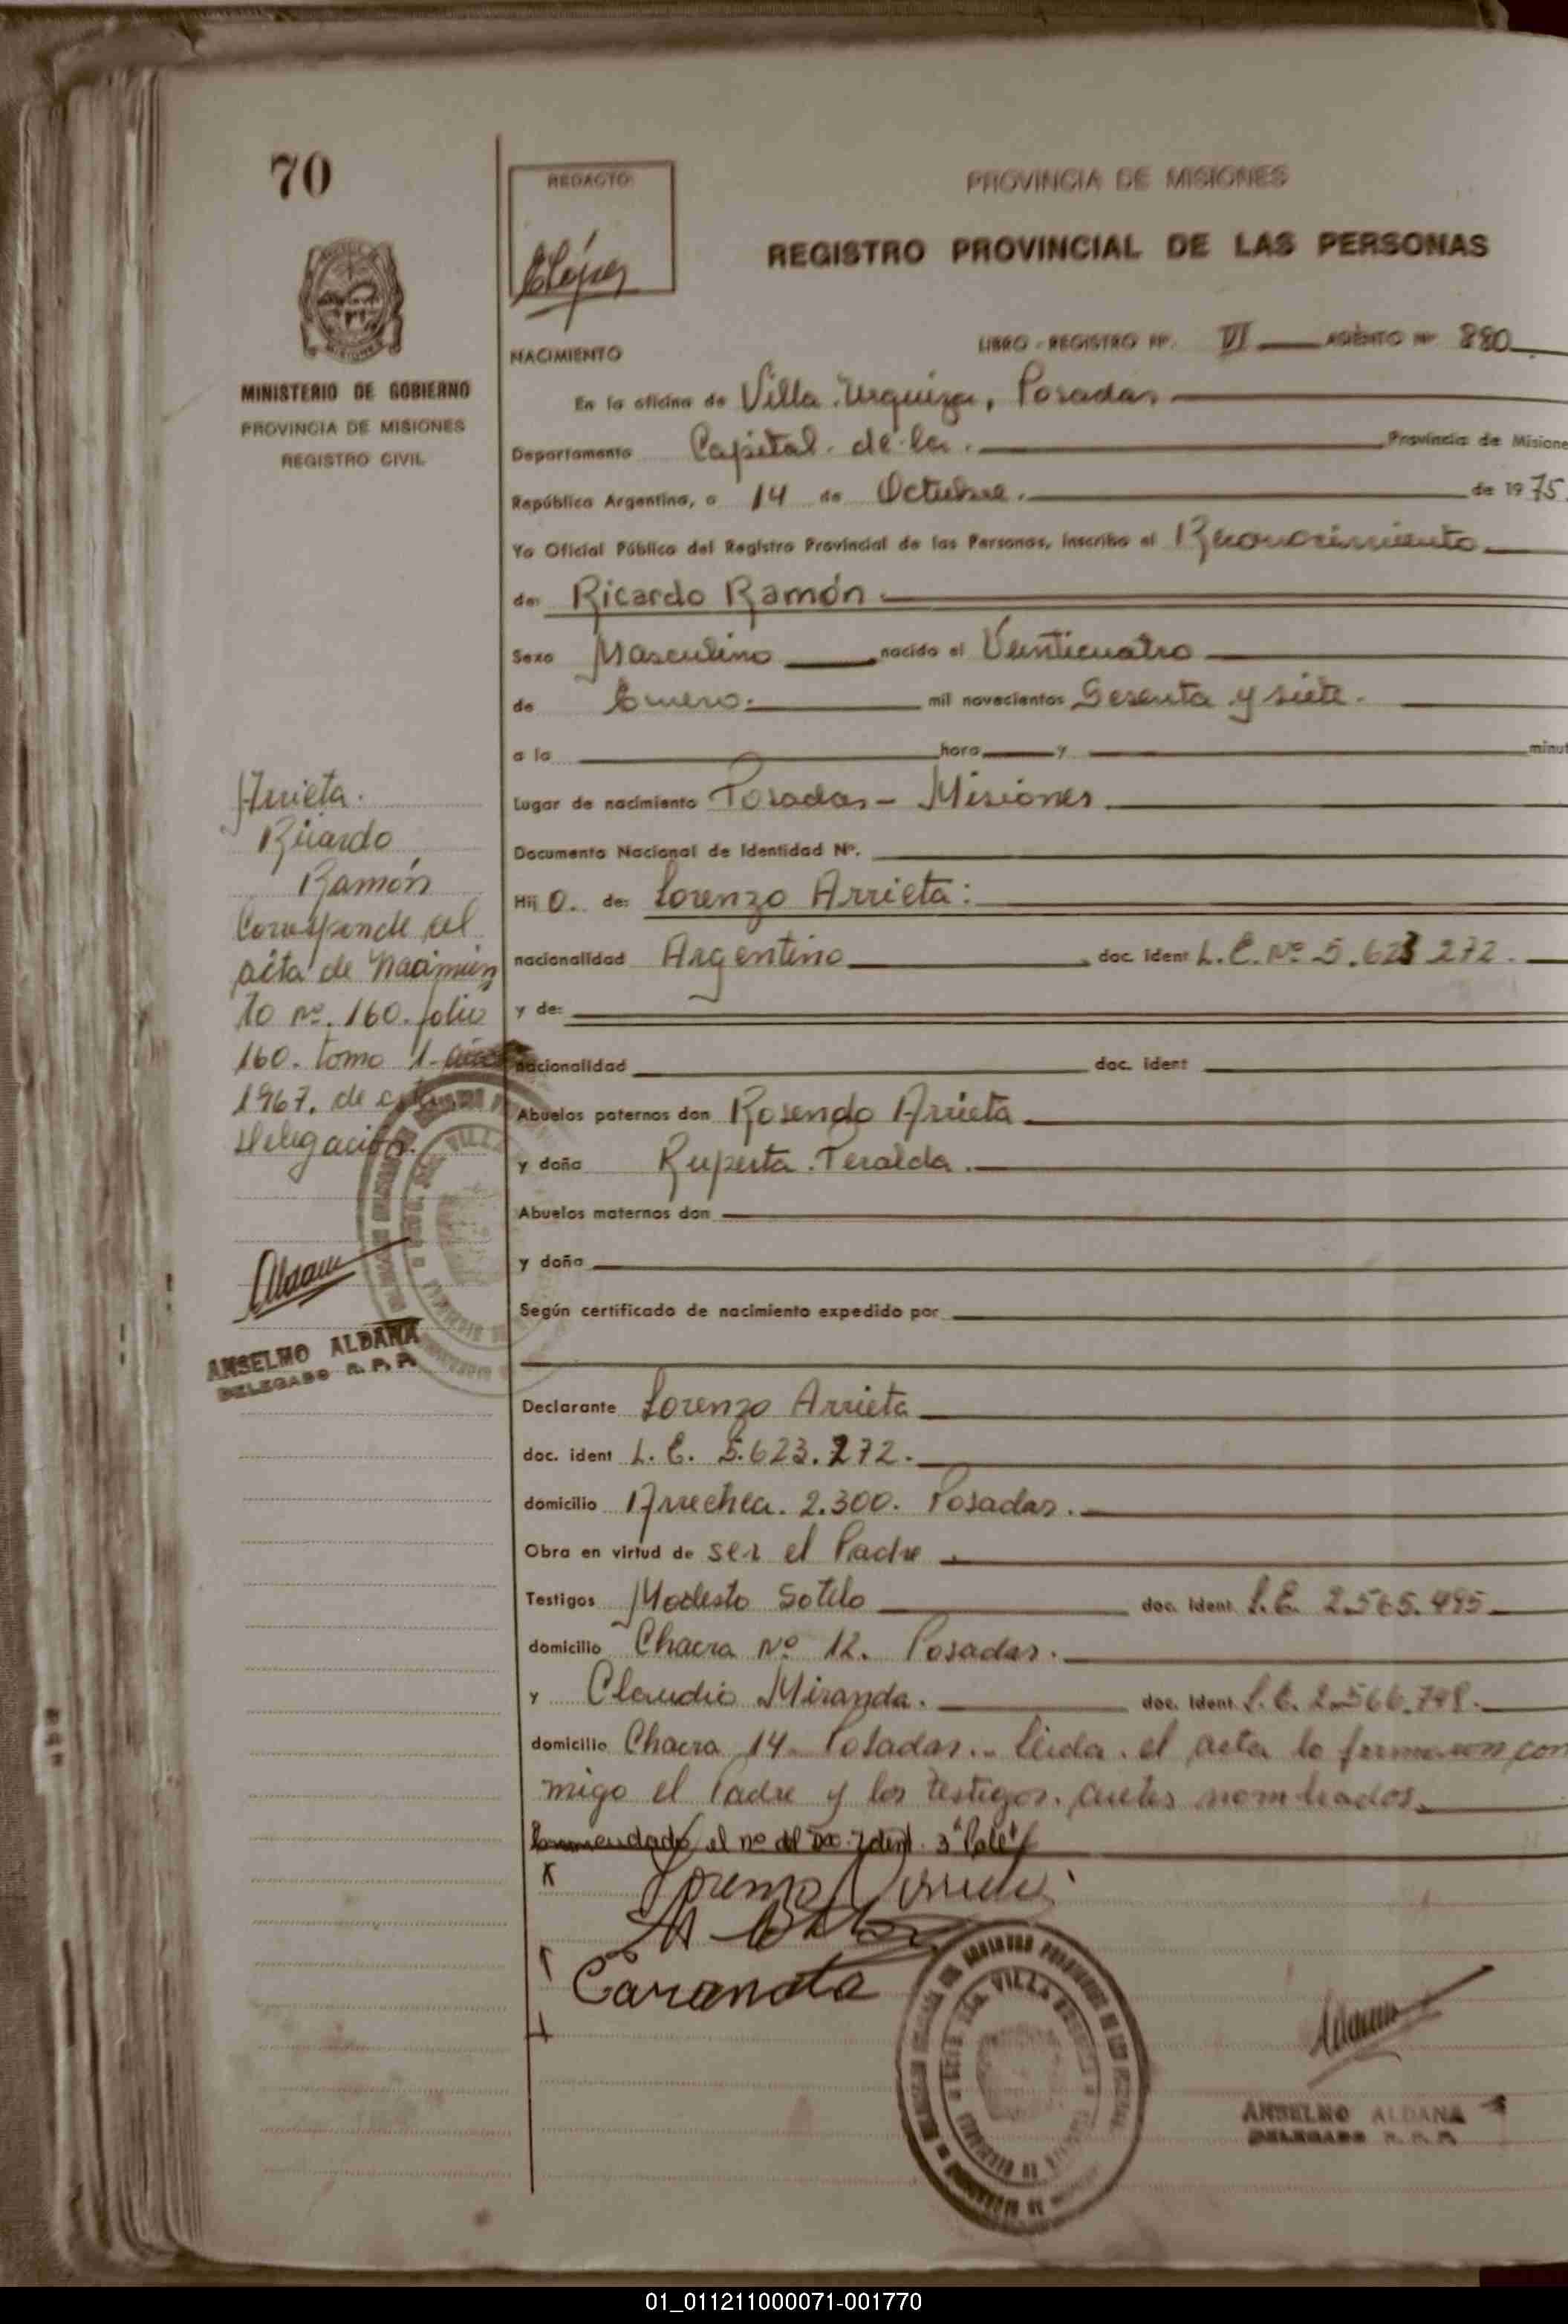 70
MINISTERIO DE GOBIERNO
PROVINCIA DE MISIONES
REGISTRO CIVIL
Arrieta.
Ricardo
Ramón
Corresponde al
acta de Nacimien
to nº. 160. folio
160. tomo 1.
1967. de esta
Delegación.
ANSELMO ALDANA
DELEGADO R. P. P.
REDACTO:
PROVINCIA DE MISIONES
REGISTRO PROVINCIAL DE LAS PERSONAS
NACIMIENTO
LIBRO - REGISTRO Nº. VI ASIENTO Nº 880
En la oficina de Villa Urquiza, Posadas
Departamento Capital. de la. Provincia de Misione
República Argentina, a 14 de Octubre. de 1975.
Yo Oficial Público del Registro Provincial de las Personas, inscribo el Reconocimiento
de: Ricardo Ramón
Sexo Masculino nacido el Veinticuatro
de Enero. mil novecientos Sesenta y siete.
a la hora y minut
Lugar de nacimiento Posadas - Misiones
Documento Nacional de Identidad Nº.
Hij o. de: Lorenzo Arrieta:
nacionalidad Argentino doc. ident L. E. Nº 5.623 272.
y de:
nacionalidad doc. ident
Abuelos paternos don Rosendo Arrieta
y doña Ruperta Peralda.
Abuelos maternos don
y doña
Según certificado de nacimiento expedido por
Declarante Lorenzo Arrieta
doc. ident L. E. 5.623.272.
domicilio Arrechea. 2.300. Posadas.
Obra en virtud de ser el Padre
Testigos Modesto Sotelo doc. ident L.E. 2.565.495
domicilio Chacra Nº 12. Posadas.
y Claudio Miranda. doc. ident L.E. 2.566.748.
domicilio Chacra 14 - Posadas.- Leida. el acta lo firmaron con
migo el Padre y los testigos. antes nombrados.
Enmendado el nº del Doc. Ident. 3 Vale
ANSELMO ALDANA
DELEGADO R. P. P.
01_011211000071-001770